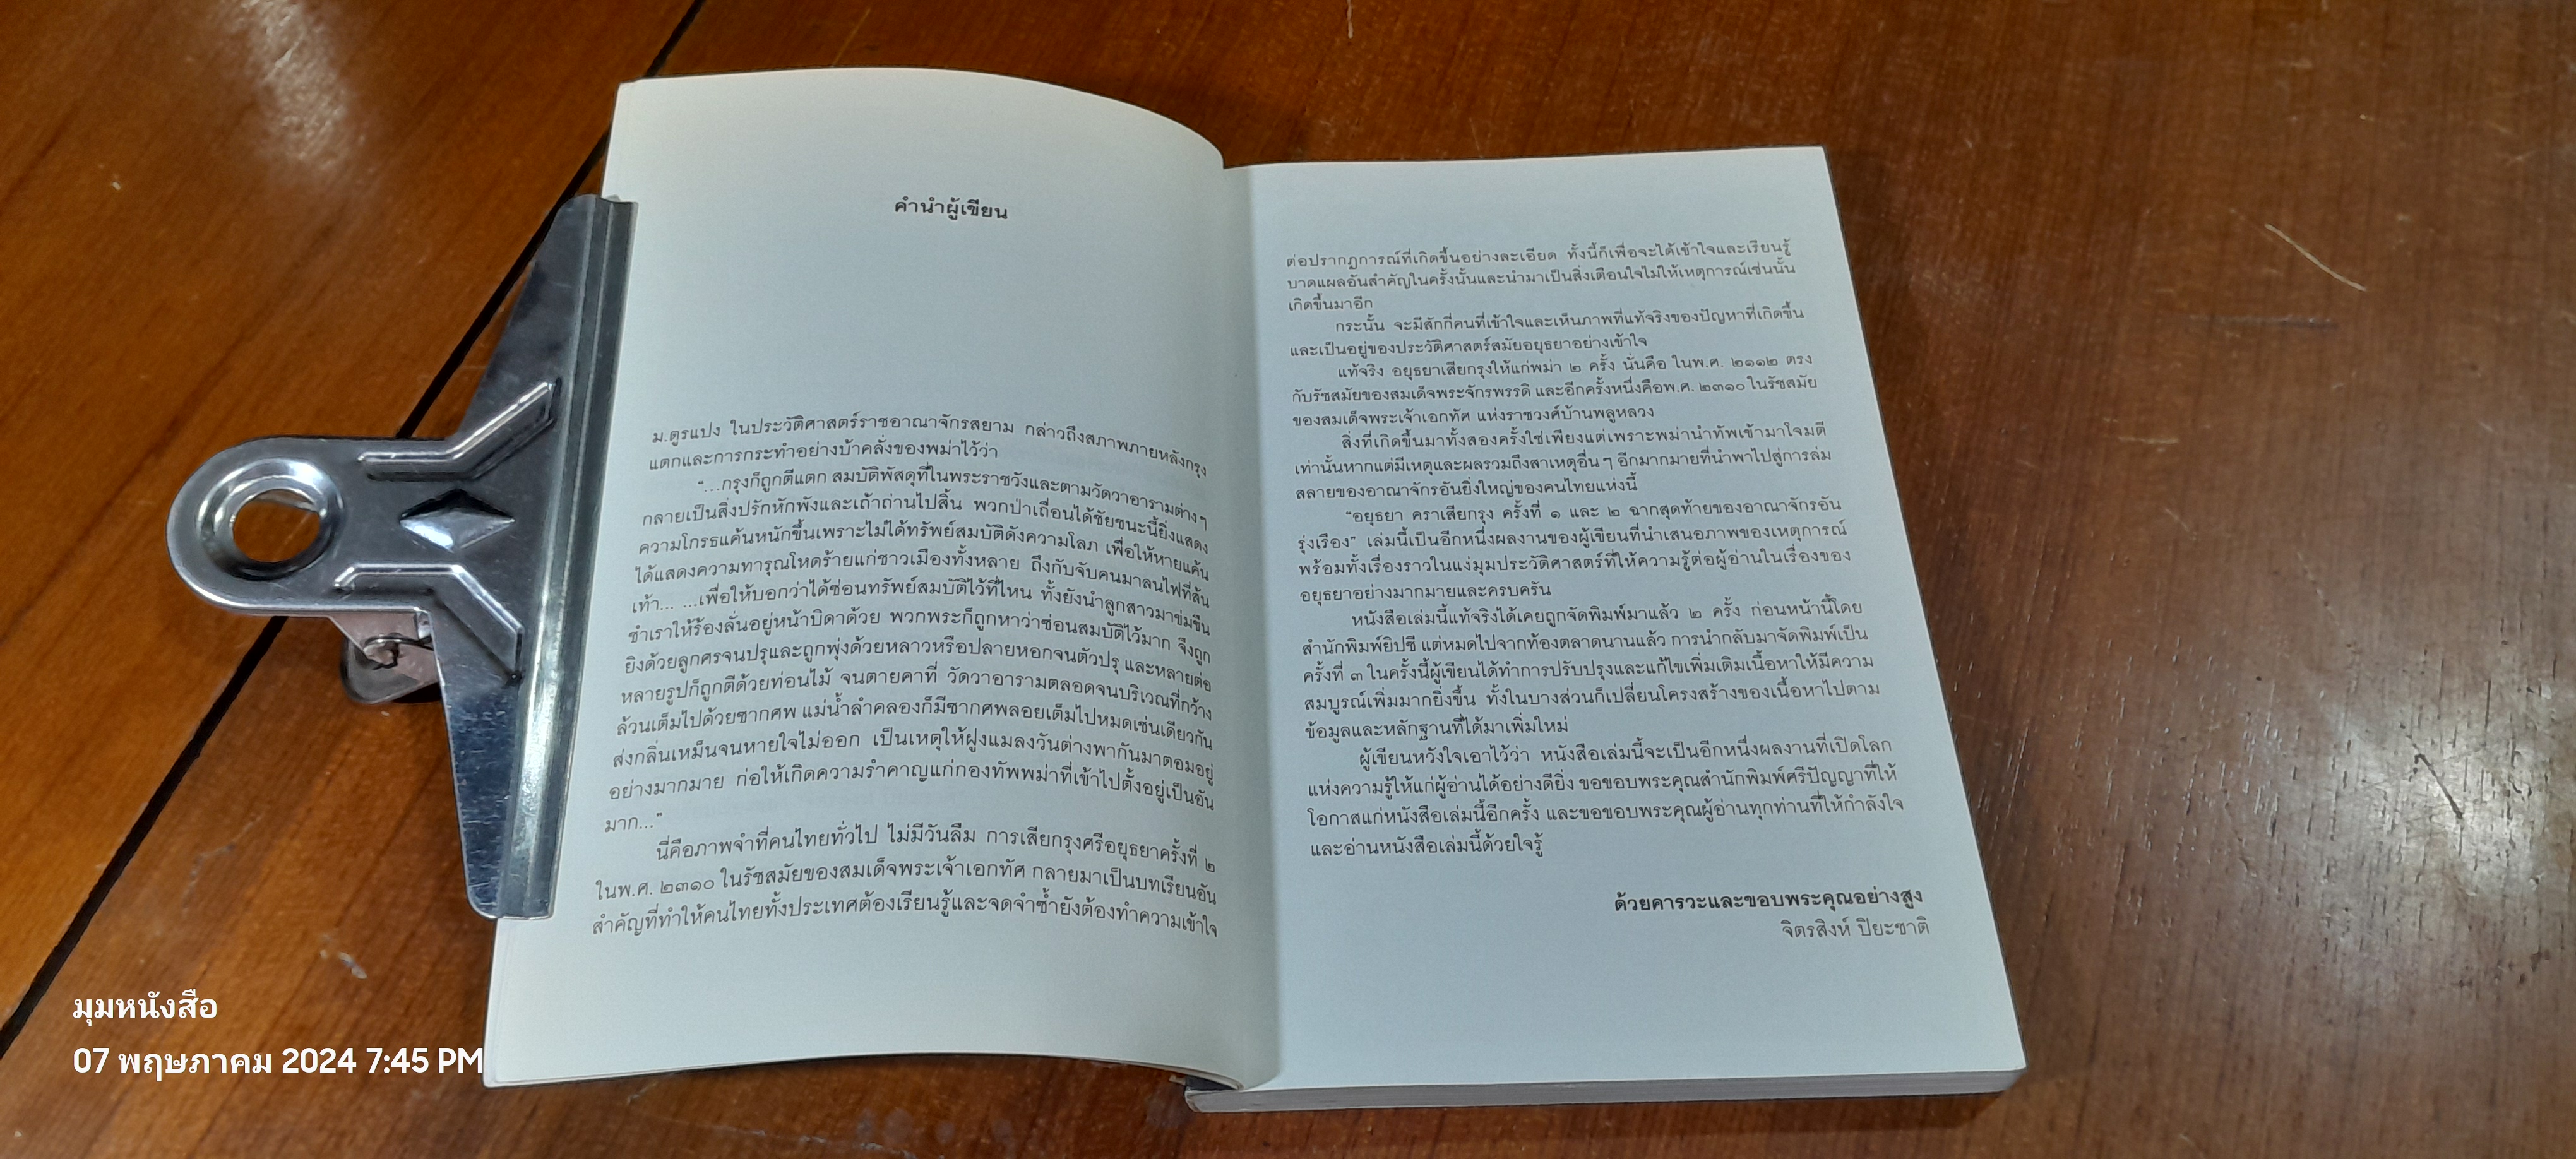 คำนำผู้เขียน
ม.ตูรแปง ในประวัติศาสตร์ราชอาณาจักรสยาม กล่าวถึงสภาพภายหลังกรุง
แตกและการกระทำอย่างบ้าคลั่งของพม่าไว้ว่า
"...กรุงก็ถูกตีแตก สมบัติพัสดุที่ในพระราชวังและตามวัดวาอารามต่างๆ
กลายเป็นสิ่งปรักหักพังและเถ้าถ่านไปสิ้น พวกป่าเถื่อนได้ชัยชนะนี้ยิ่งแสดง
ความโกรธแค้นหนักขึ้นเพราะไม่ได้ทรัพย์สมบัติดังความโลภ เพื่อให้หายแค้น
ได้แสดงความทารุณโหดร้ายแก่ชาวเมืองทั้งหลาย ถึงกับจับคนมาลนไฟที่ส้น
เท้า... ...เพื่อให้บอกว่าได้ซ่อนทรัพย์สมบัติไว้ที่ไหน ทั้งยังนำลูกสาวมาข่มขืน
ชำเราให้ร้องลั่นอยู่หน้าบิดาด้วย พวกพระก็ถูกหาว่าซ่อนสมบัติไว้มาก จึงถูก
ยิงด้วยลูกศรจนปรุและถูกพุ่งด้วยหลาวหรือปลายหอกจนตัวปรุ และหลายต่อ
หลายรูปก็ถูกตีด้วยท่อนไม้ จนตายคาที่ วัดวาอารามตลอดจนบริเวณที่กว้าง
ล้วนเต็มไปด้วยซากศพ แม่น้ำลำคลองก็มีซากศพลอยเต็มไปหมดเช่นเดียวกัน
ส่งกลิ่นเหม็นจนหายใจไม่ออก เป็นเหตุให้ฝูงแมลงวันต่างพากันมาตอมอยู่
อย่างมากมาย ก่อให้เกิดความรำคาญแก่กองทัพพม่าที่เข้าไปตั้งอยู่เป็นอัน
มาก..."
นี่คือภาพจำที่คนไทยทั่วไป ไม่มีวันลืม การเสียกรุงศรีอยุธยาครั้งที่ ๒
ในพ.ศ. ๒๓๑๐ ในรัชสมัยของสมเด็จพระเจ้าเอกทัศ กลายมาเป็นบทเรียนอัน
สำคัญที่ทำให้คนไทยทั้งประเทศต้องเรียนรู้และจดจำซ้ำยังต้องทำความเข้าใจ
ต่อปรากฏการณ์ที่เกิดขึ้นอย่างละเอียด ทั้งนี้ก็เพื่อจะได้เข้าใจและเรียนรู้
บาดแผลอันสำคัญในครั้งนั้นและนำมาเป็นสิ่งเตือนใจไม่ให้เหตุการณ์เช่นนั้น
เกิดขึ้นมาอีก
กระนั้น จะมีสักกี่คนที่เข้าใจและเห็นภาพที่แท้จริงของปัญหาที่เกิดขึ้น
และเป็นอยู่ของประวัติศาสตร์สมัยอยุธยาอย่างเข้าใจ
แท้จริง อยุธยาเสียกรุงให้แก่พม่า ๒ ครั้ง นั่นคือ ในพ.ศ. ๒๑๑๒ ตรง
กับรัชสมัยของสมเด็จพระจักรพรรดิ และอีกครั้งหนึ่งคือพ.ศ. ๒๓๑๐ ในรัชสมัย
ของสมเด็จพระเจ้าเอกทัศ แห่งราชวงศ์บ้านพลูหลวง
สิ่งที่เกิดขึ้นมาทั้งสองครั้งใช่เพียงแต่เพราะพม่านำทัพเข้ามาโจมตี
เท่านั้นหากแต่มีเหตุและผลรวมถึงสาเหตุอื่นๆ อีกมากมายที่นำพาไปสู่การล่ม
สลายของอาณาจักรอันยิ่งใหญ่ของคนไทยแห่งนี้
"อยุธยา คราเสียกรุง ครั้งที่ ๑ และ ๒ ฉากสุดท้ายของอาณาจักรอัน
รุ่งเรือง" เล่มนี้เป็นอีกหนึ่งผลงานของผู้เขียนที่นำเสนอภาพของเหตุการณ์
พร้อมทั้งเรื่องราวในแง่มุมประวัติศาสตร์ที่ให้ความรู้ต่อผู้อ่านในเรื่องของ
อยุธยาอย่างมากมายและครบครัน
หนังสือเล่มนี้แท้จริงได้เคยถูกจัดพิมพ์มาแล้ว ๒ ครั้ง ก่อนหน้านี้โดย
สำนักพิมพ์ยิปซี แต่หมดไปจากท้องตลาดนานแล้ว การนำกลับมาจัดพิมพ์เป็น
ครั้งที่ ๓ ในครั้งนี้ผู้เขียนได้ทำการปรับปรุงและแก้ไขเพิ่มเติมเนื้อหาให้มีความ
สมบูรณ์เพิ่มมากยิ่งขึ้น ทั้งในบางส่วนก็เปลี่ยนโครงสร้างของเนื้อหาไปตาม
ข้อมูลและหลักฐานที่ได้มาเพิ่มใหม่
ผู้เขียนหวังใจเอาไว้ว่า หนังสือเล่มนี้จะเป็นอีกหนึ่งผลงานที่เปิดโลก
แห่งความรู้ให้แก่ผู้อ่านได้อย่างดียิ่ง ขอขอบพระคุณสำนักพิมพ์ศรีปัญญาที่ให้
โอกาสแก่หนังสือเล่มนี้อีกครั้ง และขอขอบพระคุณผู้อ่านทุกท่านที่ให้กำลังใจ
และอ่านหนังสือเล่มนี้ด้วยใจรู้
ด้วยคารวะและขอบพระคุณอย่างสูง
จิตรสิงห์ ปิยะชาติ
มุมหนังสือ
07 พฤษภาคม 2024 7:45 PM